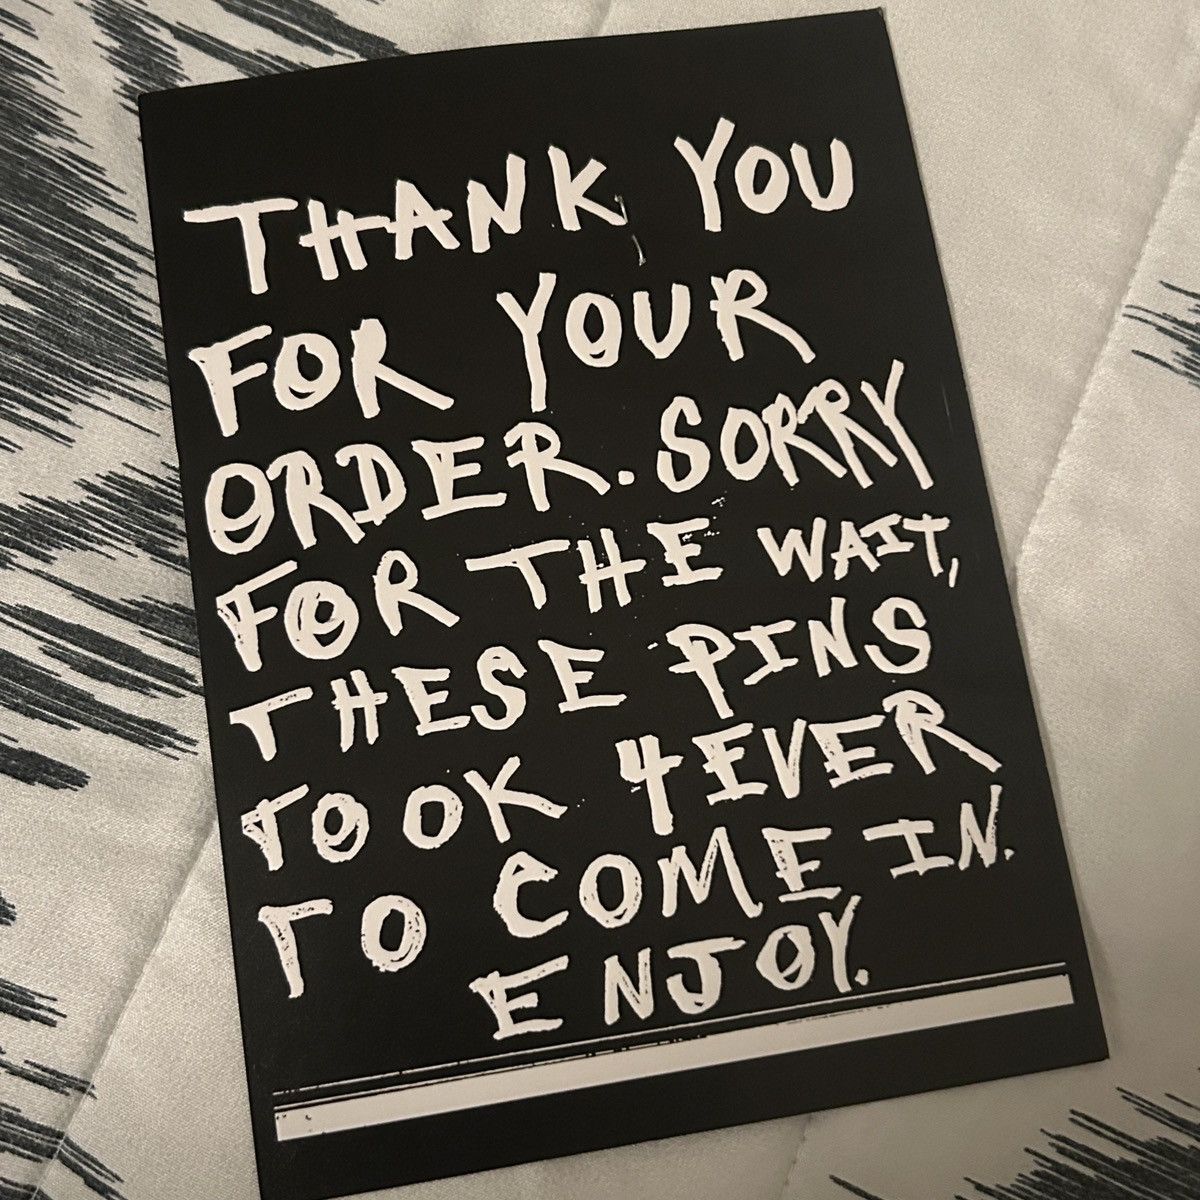 THANK YOU
FOR YOUR
ORDER. SORRY
FOR THE WAIT,
THESE PINS
TOOK 4EVER
TO COME IN.
ENJOY.